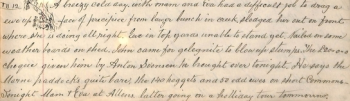 TH 12. A breezy cold day, with mean and Ken has a difficult job to drag a
sweep of precipice from lower bunch in creek, dragged her out on front
where she is doing all right. Ewe in Top yards unable to stand yet. Nailed on some
weather boards on shed. John came for gelegnite to blow up stumps. The
chegue given him by Anton Iverson he brought over tonight. He says the
Marne paddock's quite bare; the two heggets and 50 odd ewes on short Commons.
Tonight Mam & Eva at Allens latter going on a holiday tour tommorrow,